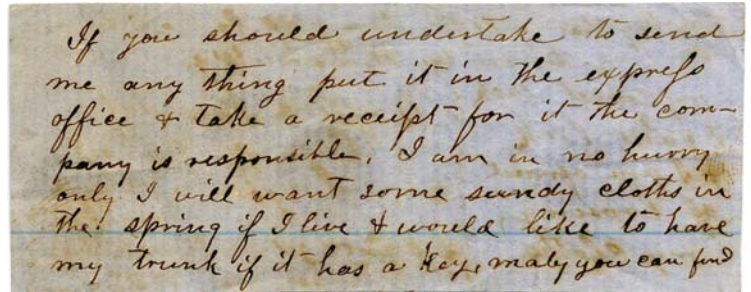 If you should undertake to send
me any thing put it in the express
office & take a receipt for it the com-
pany is responsible. I am in no hurry
only I will want some sundy cloths in
the spring if I live & would like to have
my trunk if it has a key, maby you can find